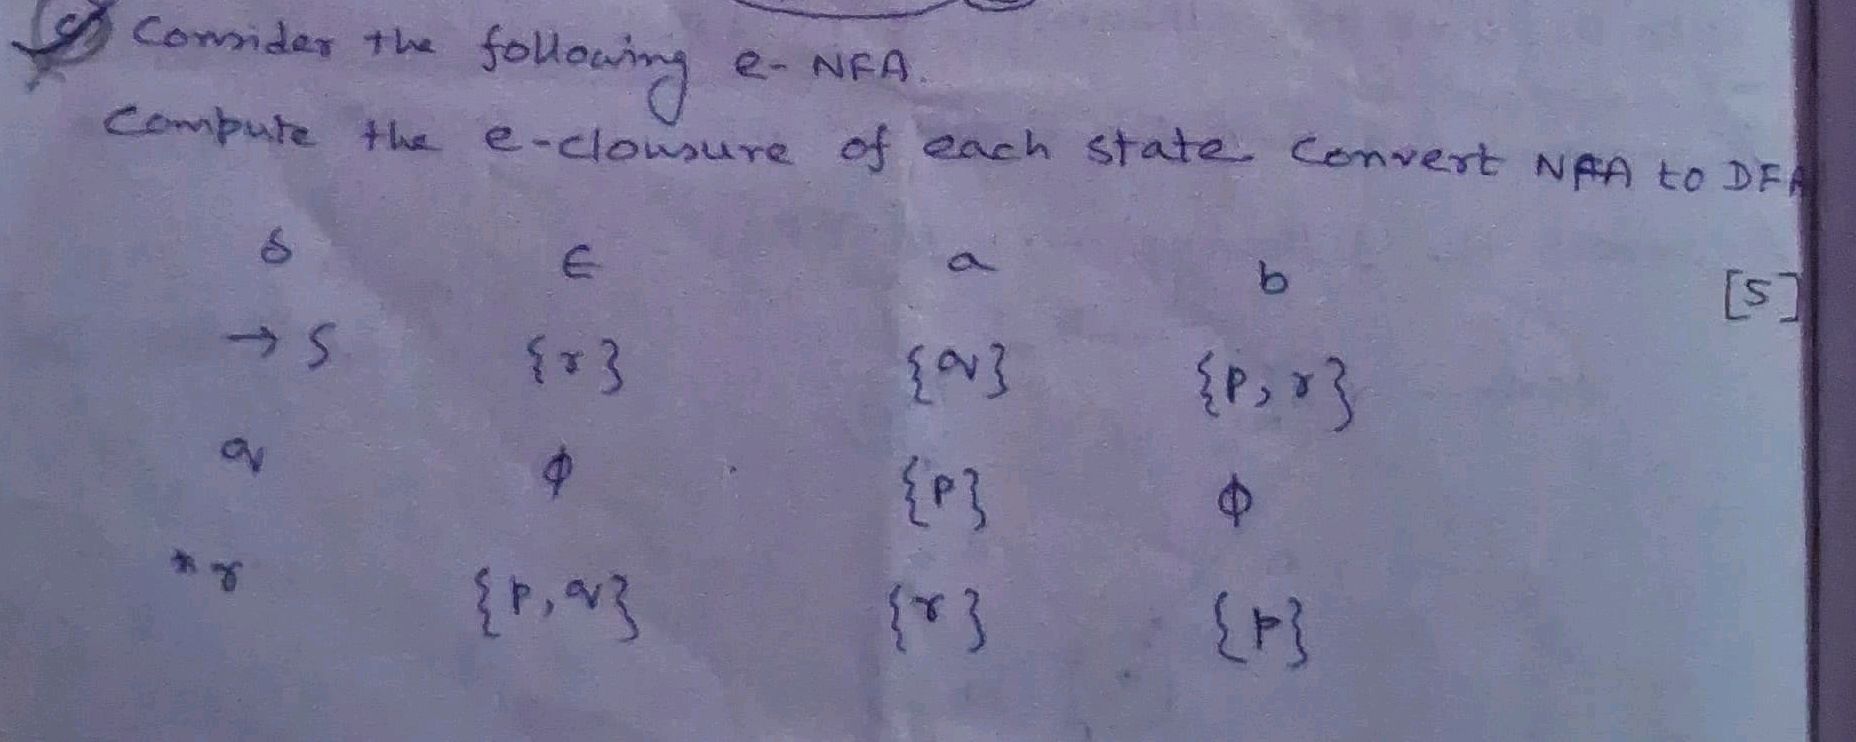 c) Consider the following e-NFA.
Compute the e-clousure of each state. Convert NFA to DFA
δ ∈ a b [5]
→ S {r} {q} {p, r}
q ϕ {p} ϕ
* r {p, q} {r} {p}